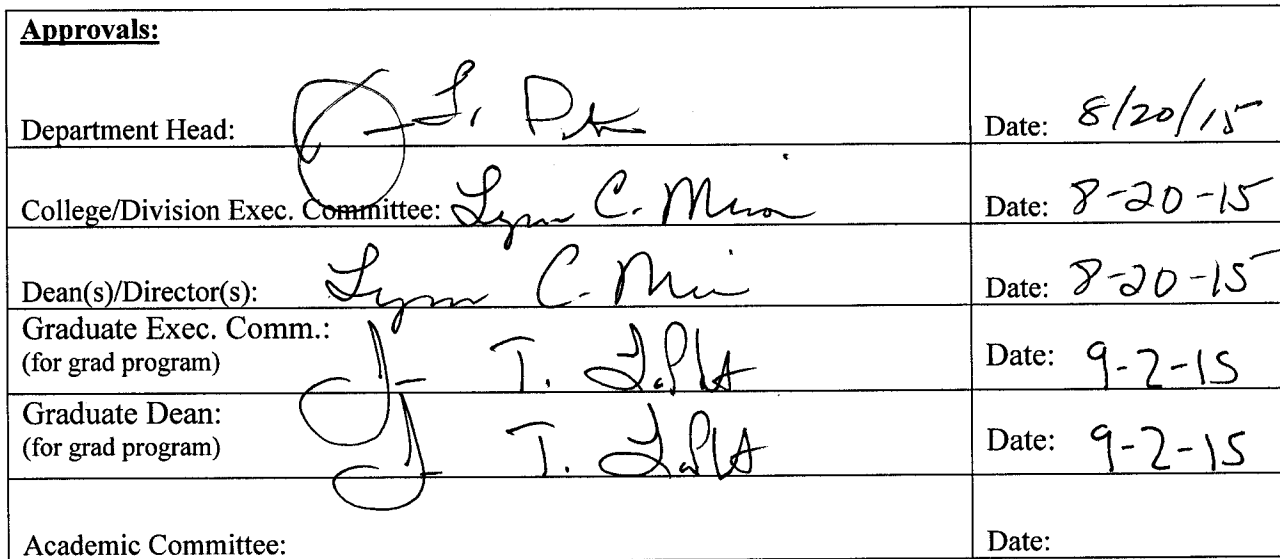 Approvals:
Department Head: Date: 8/20/15
College/Division Exec. Committee: Lynn C. Date: 8-20-15
Dean(s)/Director(s): Lynn C. Date: 8-20-15
Graduate Exec. Comm.:
(for grad program) T. Date: 9-2-15
Graduate Dean:
(for grad program) T. Date: 9-2-15
Academic Committee: Date: